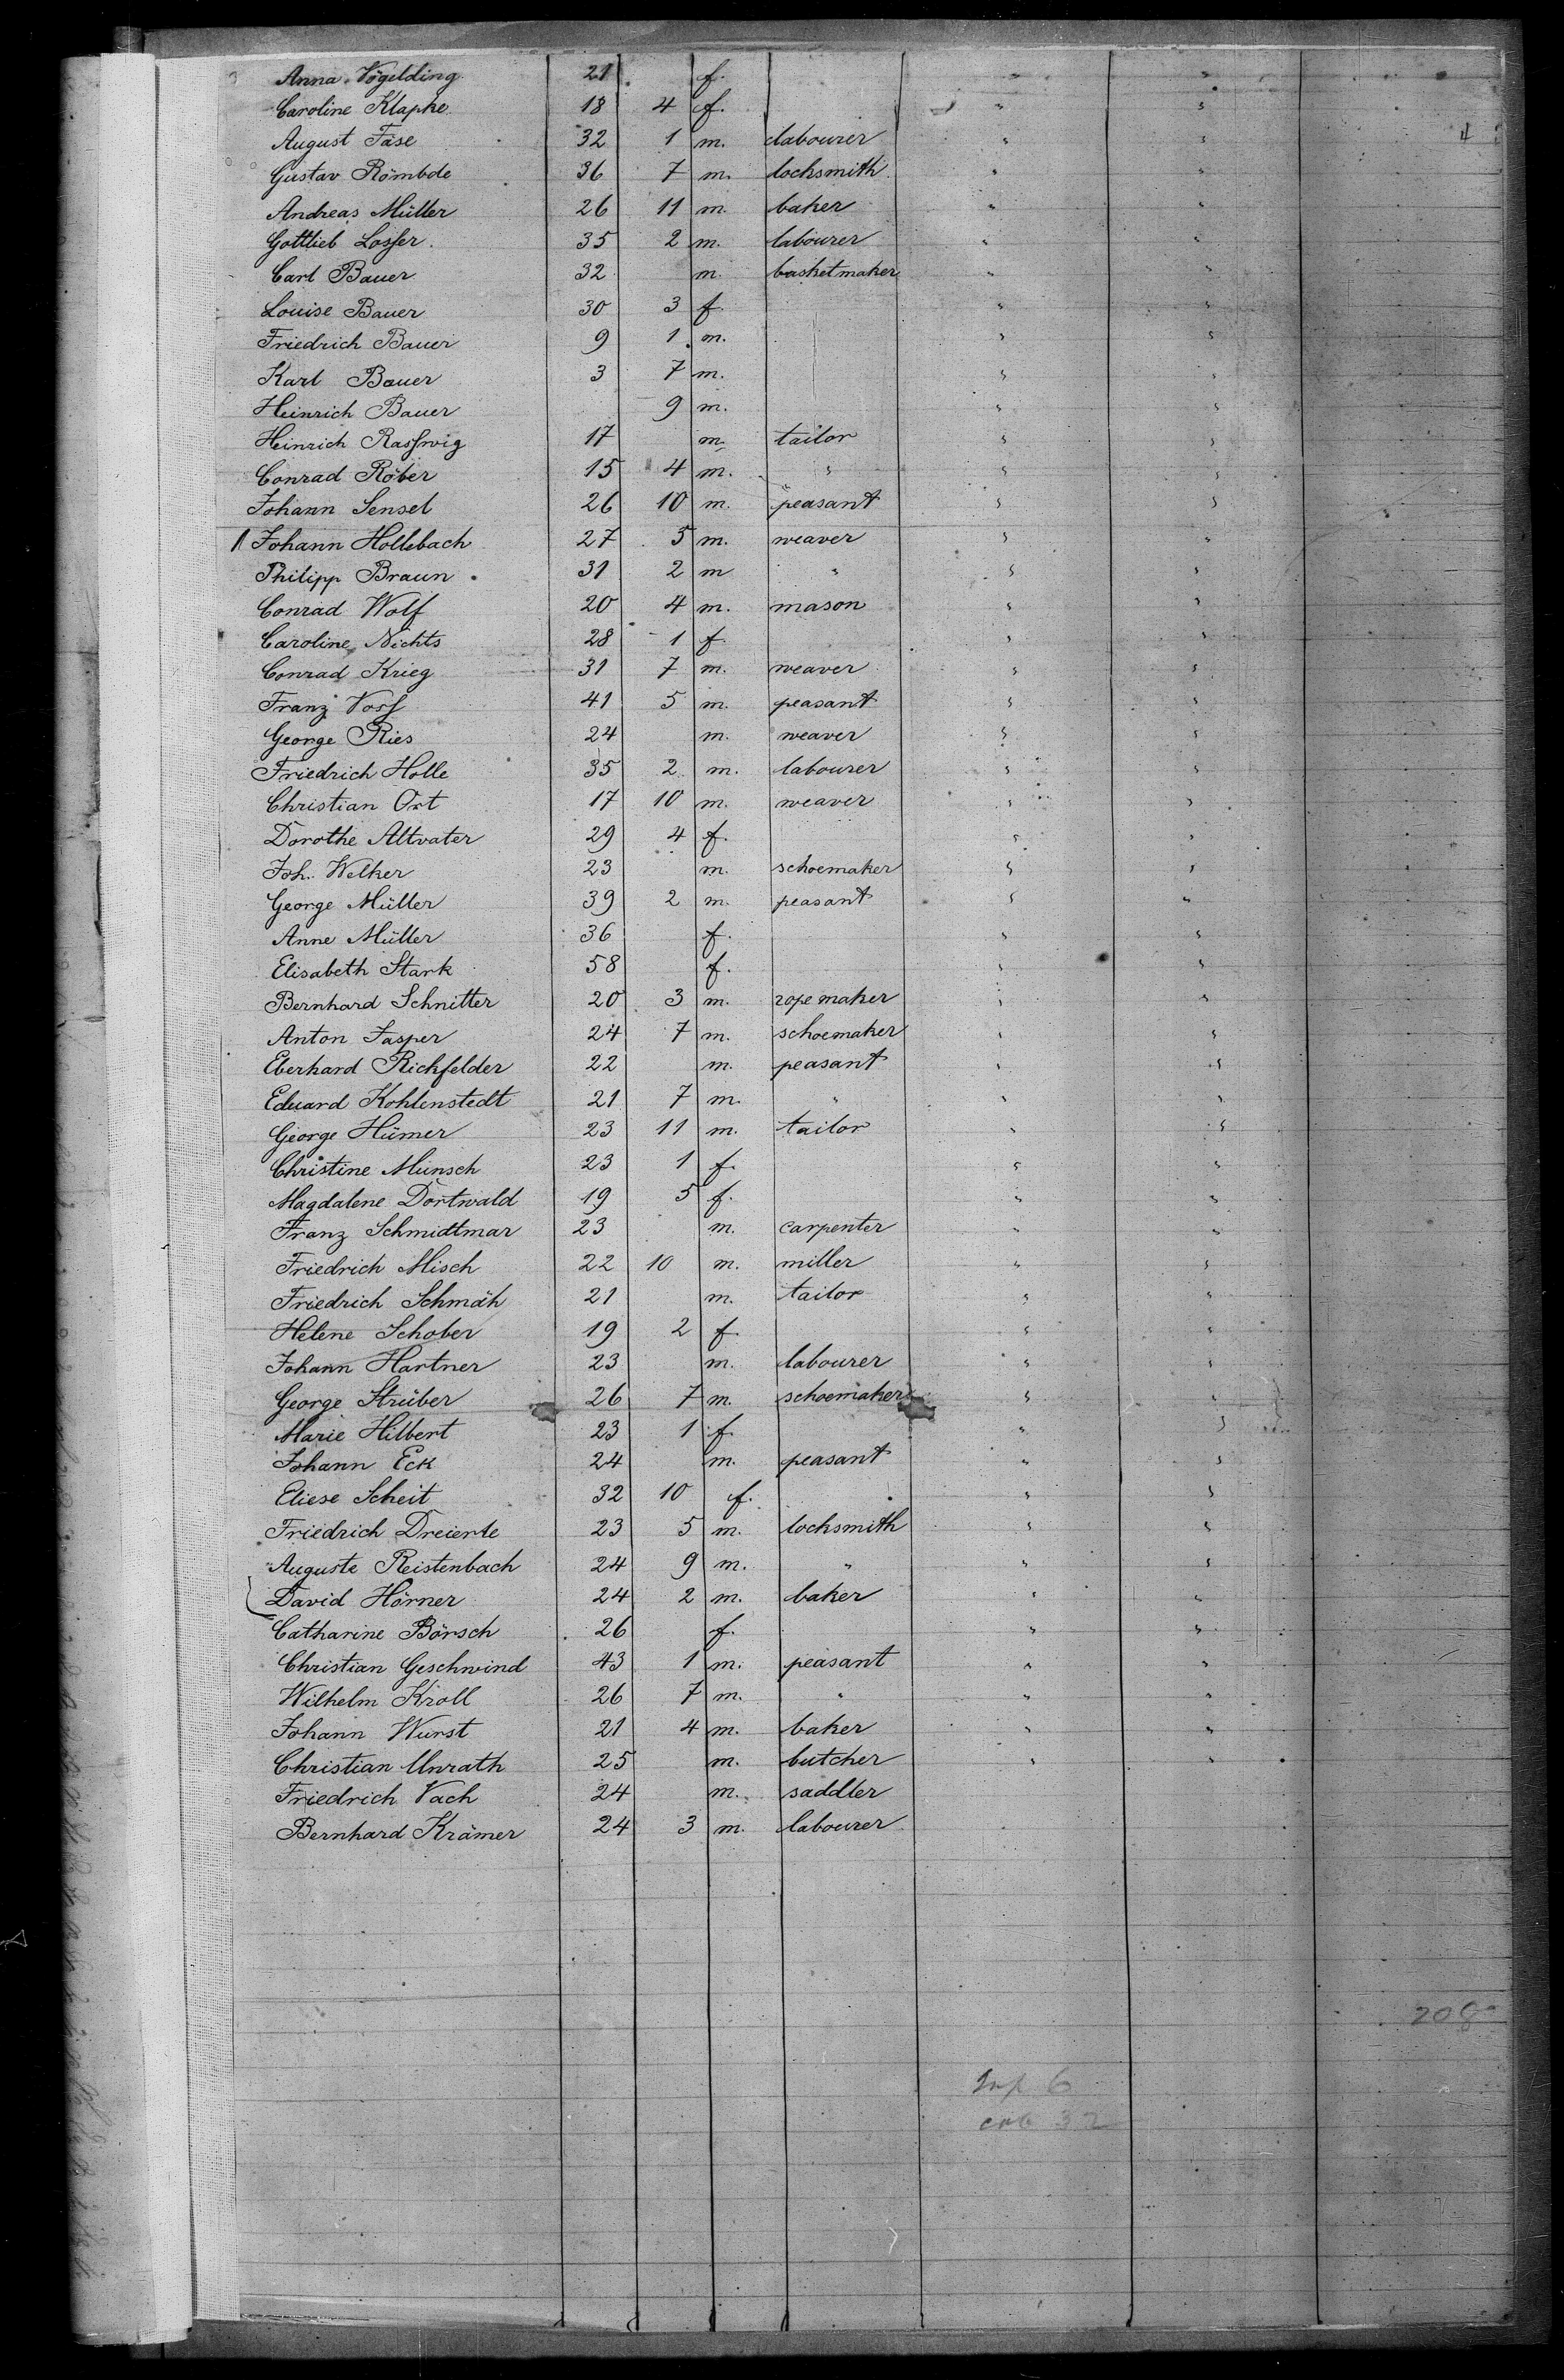 Anna Vögelding 21 f. " "
Caroline Klapke 18 4 f. " "
August Fäse 32 1 m. labourer " " 4
Gustav Römbde 36 7 m. locksmith " "
Andreas Müller 26 11 m. baker " "
Gottlieb Losser 35 2 m. labourer " "
Carl Bauer 32 m. basketmaker " "
Louise Bauer 30 3 f. " "
Friedrich Bauer 9 1 m. " "
Karl Bauer 3 7 m. " "
Heinrich Bauer 9 m. " "
Heinrich Rasswig 17 m. tailor " "
Conrad Röber 15 4 m. " " "
Johann Sensel 26 10 m. peasant " "
Johann Hollebach 27 5 m. weaver " "
Philipp Braun 31 2 m " " "
Conrad Wolf 20 4 m. mason " "
Caroline Nichts 28 1 f. " "
Conrad Krieg 31 7 m. weaver " "
Franz Voss 41 5 m. peasant " "
George Ries 24 m. weaver " "
Friedrich Holle 35 2 m. labourer " "
Christian Ort 17 10 m. weaver " "
Dorothe Altvater 29 4 f. " "
Joh. Welker 23 m. schoemaker " "
George Müller 39 2 m. peasant " "
Anne Müller 36 f. " "
Elisabeth Stark 58 f. " "
Bernhard Schnitter 20 3 m. rope maker " "
Anton Jasper 24 7 m. schoemaker " "
Eberhard Richfelder 22 m. peasant " "
Eduard Kohlenstedt 21 7 m. " " "
George Hümer 23 11 m. tailor " "
Christine Münsch 23 1 f. " "
Magdalene Dortwald 19 5 f. " "
Franz Schmidtmar 23 m. carpenter " "
Friedrich Misch 22 10 m. miller " "
Friedrich Schmäh 21 m. tailor " "
Helene Schober 19 2 f. " "
Johann Hartner 23 m. labourer " "
George Strüber 26 7 m. schoemaker " "
Marie Hilbert 23 1 f. " "
Johann Eck 24 m. peasant " "
Eliese Scheit 32 10 f. " "
Friedrich Dreierte 23 5 m. locksmith " "
Auguste Reistenbach 24 9 m. " " "
David Hörner 24 2 m. baker " "
Catharine Börsch 26 f. " "
Christian Geschwind 43 1 m. peasant " "
Wilhelm Kroll 26 7 m. " " "
Johann Wurst 21 4 m. baker " "
Christian Unrath 25 m. butcher " "
Friedrich Vach 24 m. saddler
Bernhard Krämer 24 3 m. labourer
208
Inf 6
cab 32